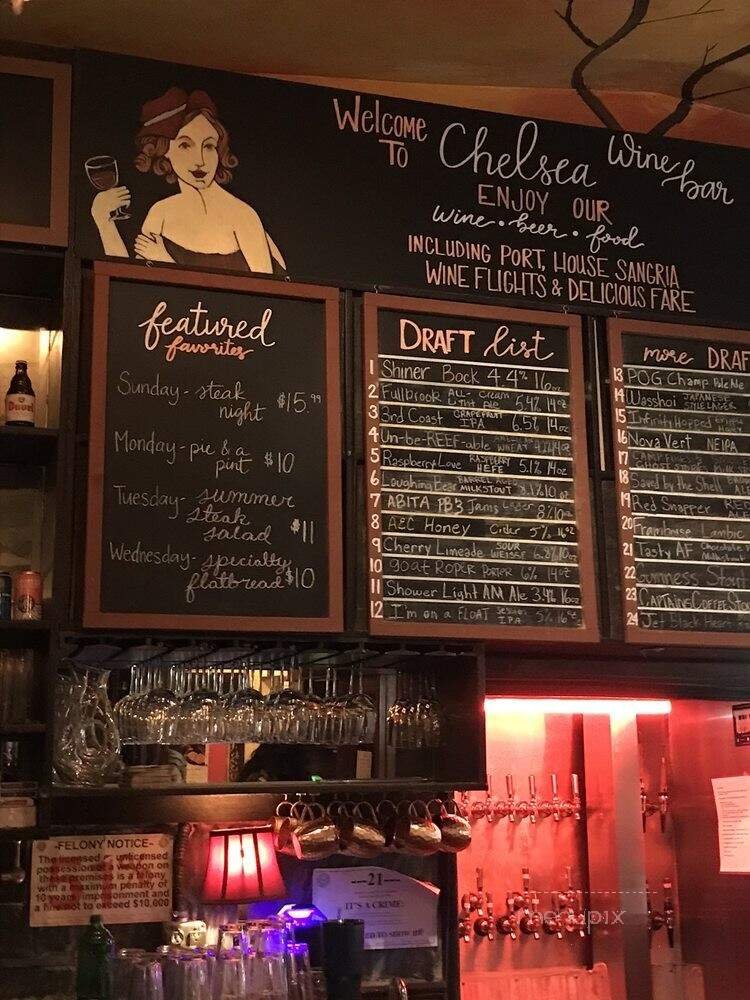 Welcome
TO Chelsea Wine bar
ENJOY OUR
wine • beer • food
INCLUDING PORT, HOUSE SANGRIA
WINE FLIGHTS & DELICIOUS FARE
featured
favorites
Sunday - steak
night $15.99
Monday - pie & a
pint $10
Tuesday - summer
steak
salad $11
Wednesday - specialty
flatbread $10
DRAFT list
1 Shiner Bock 4.4% 16oz
2 Fullbrook ALL- Cream Ale 5.4% 14oz
3 3rd Coast GRAPEFRUIT IPA 6.5% 14oz
4 Un-be-REEF-able WHEAT
5 Raspberry Love RASPBERRY HEFE 5.1% 14oz
6 Laughing Bear BARREL AGED MILKSTOUT 10oz
7 ABITA PB3 Jams Lager 8% 10oz
8 AEC Honey Cider 5% 16oz
9 Cherry Limeade SOUR WEISSE 6.2% 10oz
10 goat ROPER PORTER 6% 14oz
11 Shower Light AM Ale 3.4% 16oz
12 I'm on a FLOAT Session IPA 5% 16oz
more DRAF
13 POG Champ Pale Ale
14 Wasshoi JAPANESE STYLE LAGER
15 Infinity Hopped
16 Nova Vert NEIPA
17
18 Saved by the Shell
19 Red Snapper RED ALE
20 Framboise Lambic
21 Tasty AF Chocolate Milkstout
22 Guinness Stout
23 CAPTAINS COFFEE Sto
24 Jet Black Heart
Duvel
-FELONY NOTICE-
The licensed or unlicensed
possession of a weapon on
these premises is a felony
with a maximum penalty of
10 years imprisonment and
a fine not to exceed $10,000
21
IT'S A CRIME:
menupix